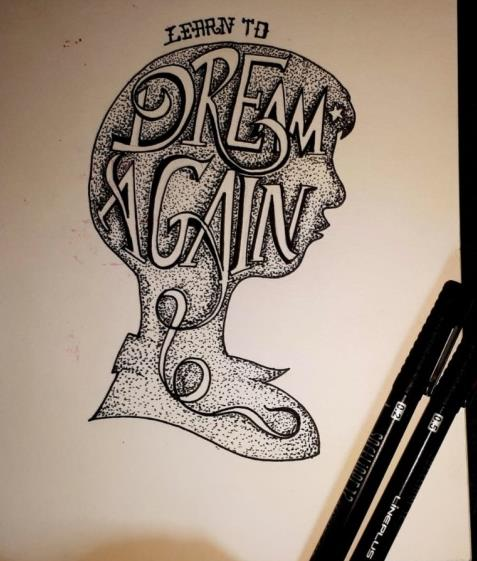 LEARN TO
DREAM
AGAIN
0.2
0.5
LINEPLUS